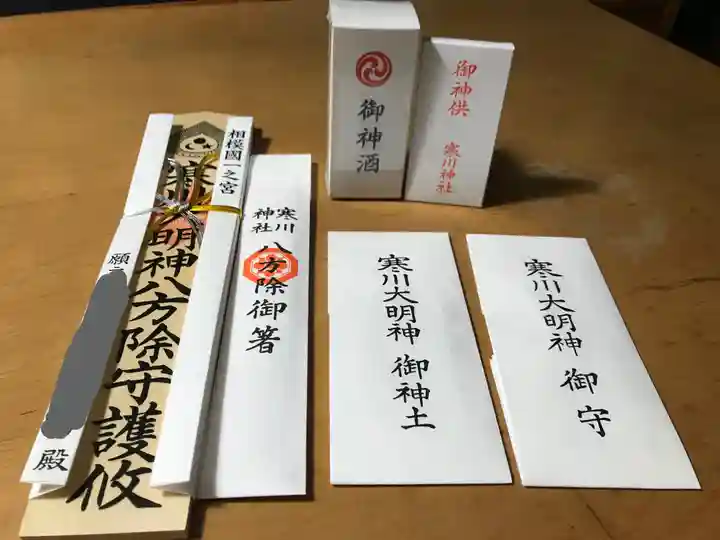 相模國一之宮
寒川大明神八方除守護攸
願
殿
寒川
神社
八方除御箸
御神酒
御神供
寒川神社
寒川大明神 御神土
寒川大明神 御守